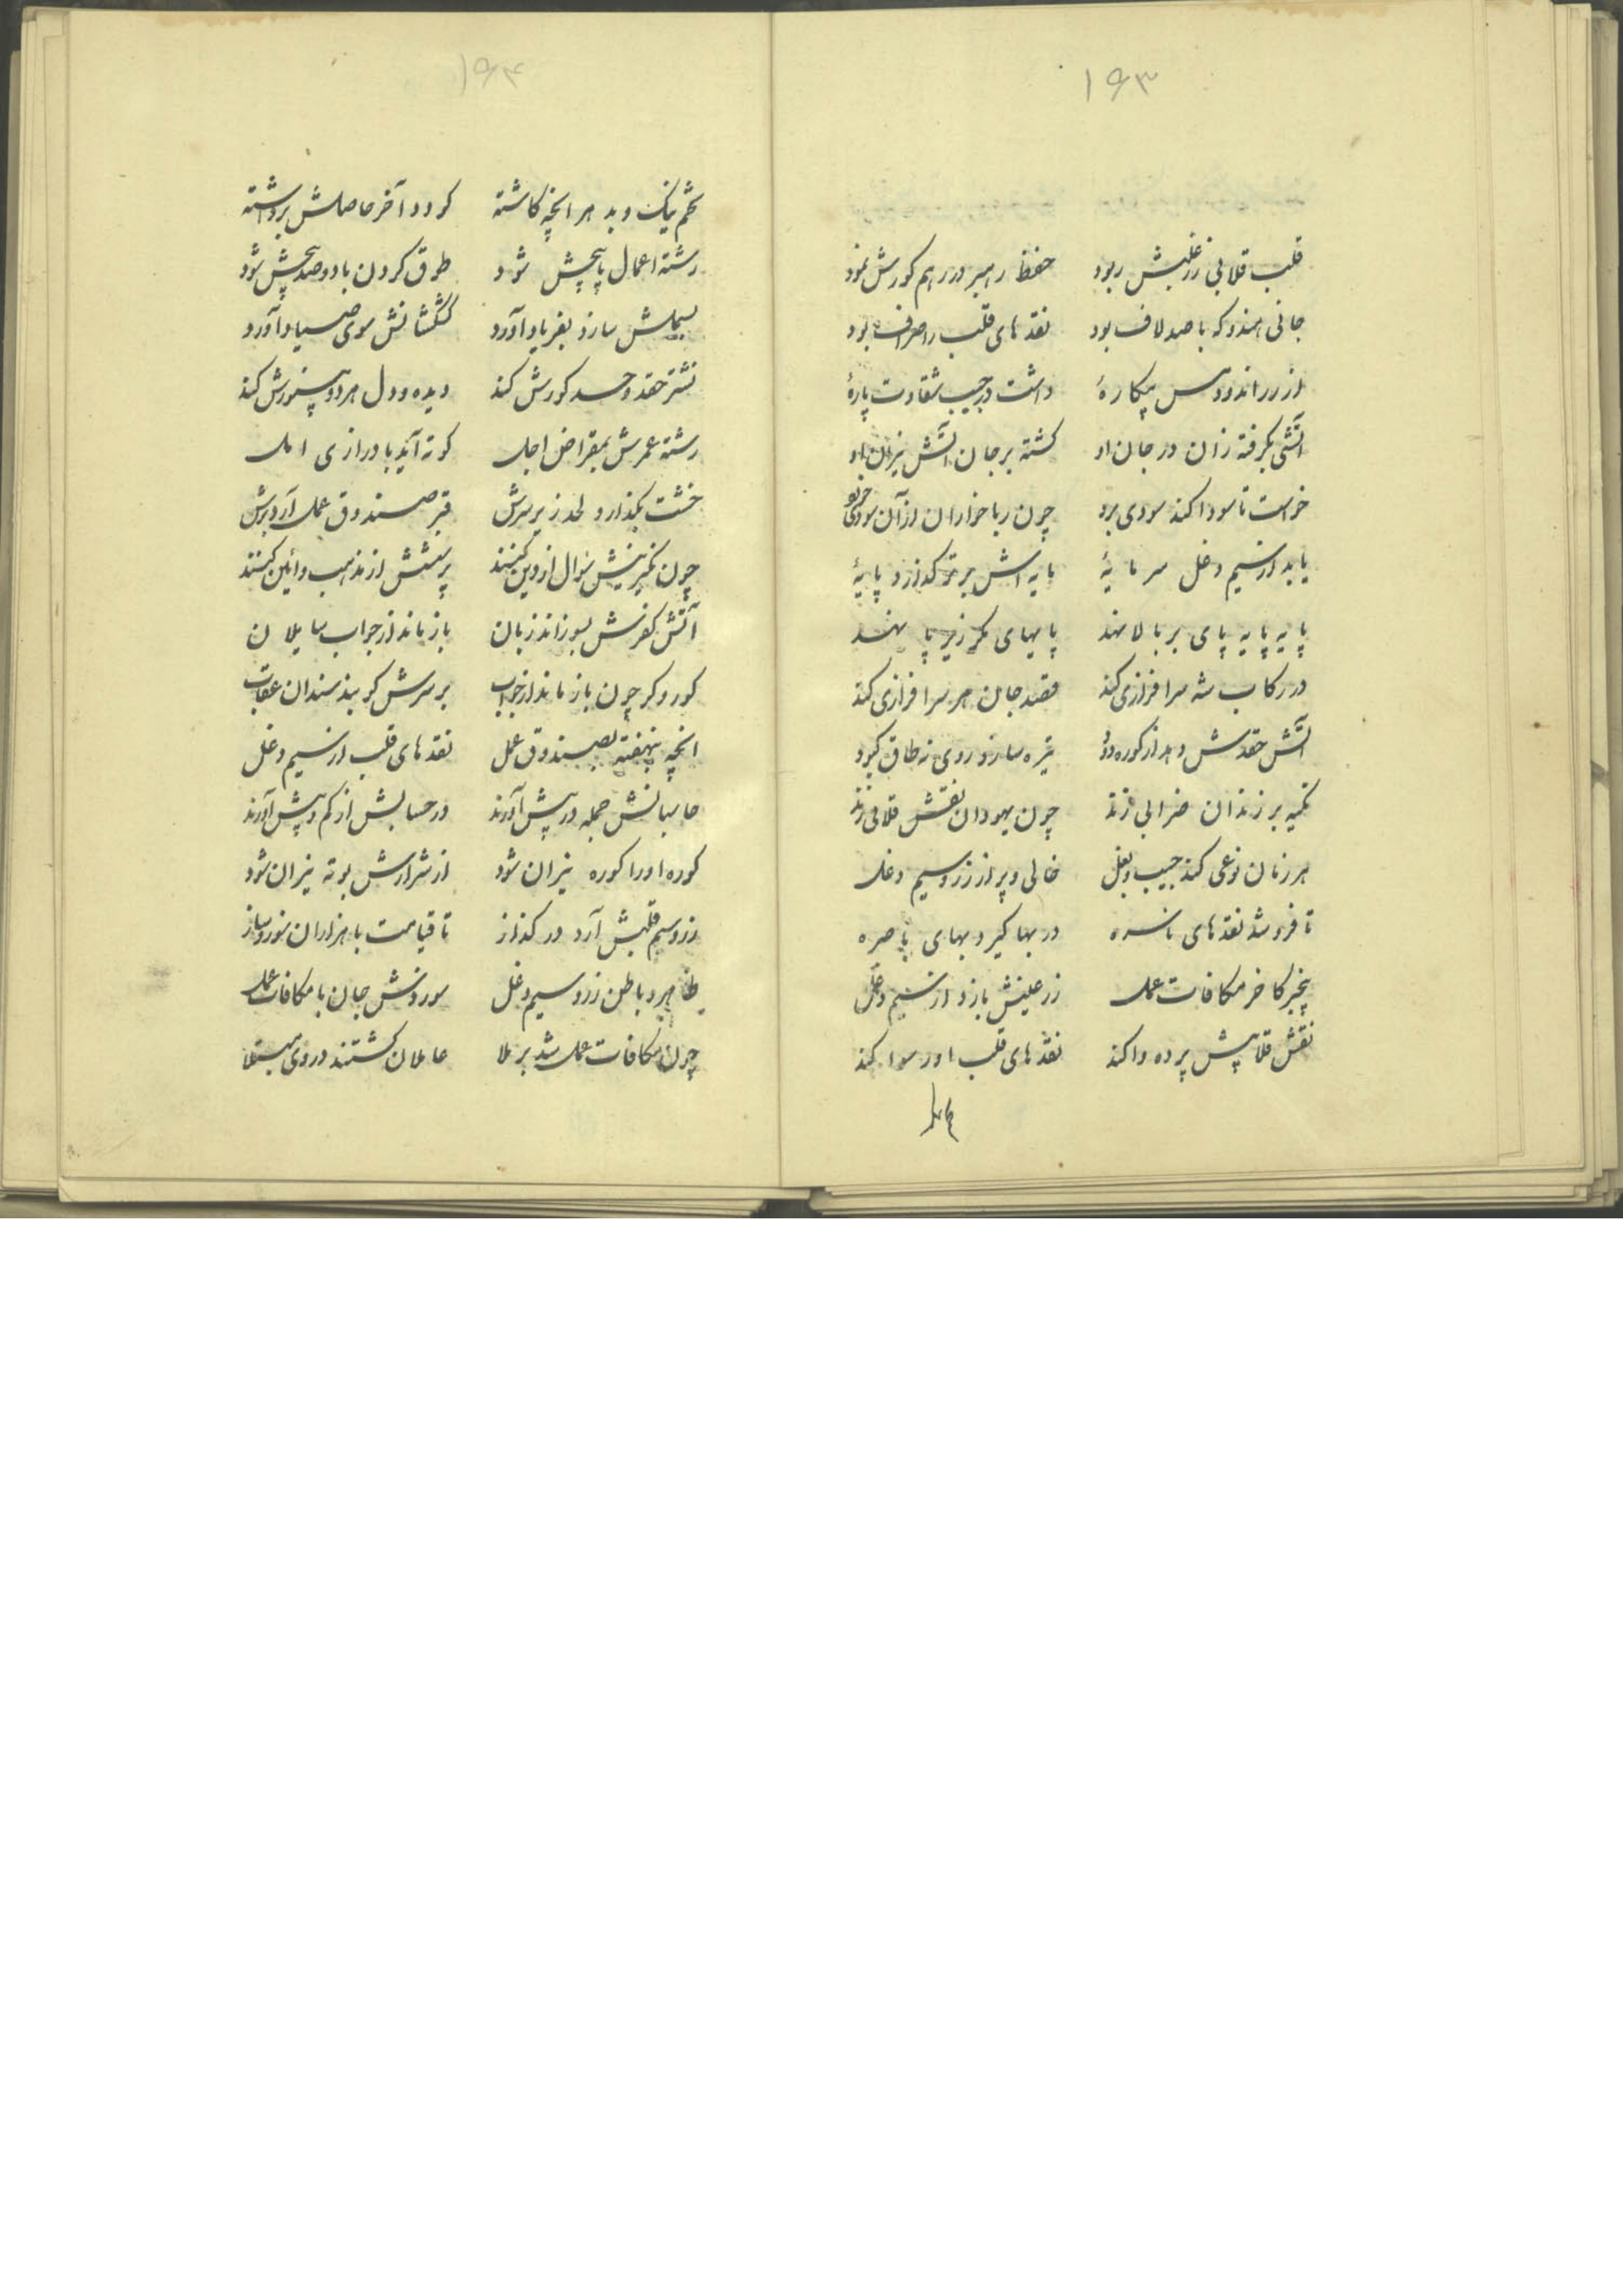 ۱۶۳
قلب قلابی زر غلبش ربود حفظ رهبر در رهم کورش نمود
جانی هندو که با صد لاف بود نقدهای قلب را صراف بود
از زر اندود مس پیکارهٔ داشت در جیب شقاوت پارهٔ
آتشی بگرفته زان در جان او کشته بر جان آتش نیران او
خواست تا سودا کند سودی برد چون رباخواران از آن سودی خورد
یابد از سیم دغل سرمایهٔ مایه‌اش برتر گذارد پایهٔ
پایه پایه پای بر بالا نهد پایهای مکر زیر پا نهد
در رکاب شه سرافرازی کند قصد جان هر سرافرازی کند
آتش حقدش دهد از کوره دود تیره سازد روی نه طاق کبود
تکیه بر زندان ضرابی زند چون یهودان نقش قلابی زند
هر زمان نوعی کند جیب و بغل خالی و پر از زر و سیم دغل
تا فروشد نقدهای ناسره در بها گیرد بهای با صره
بیخبر کاخر مکافات عمل زر علینش بازد از سیم دغل
نقش قلابیش پرده وا کند نقدهای قلب او رسوا کند
تخم
۱۶۴
تخم نیک و بد هر انچه کاشته کو درد آخر حاصلش برداشته
رشته اعمال پاپیچش شود طوق گردن با دو صد پیچش شود
بسملش سازد بفریاد آورد کشکشانش سوی صیاد آورد
نشتر حقد و حسد کورش کند دیده و دل هر دو بینورش کند
رشته عمرش بمقراض اجل کوته آید با درازی امل
خشت بگذارد لحد زیر سرش قبر صندوق عمل آرد برش
چون نکیرینش سوال از دین کنند پرسشش از مذهب و آئین کنند
آتش کفرش بسوزاند زبان باز ماند از جواب سایلان
کور و کر چون باز ماند از جواب بر سرش کوبند سندان عقاب
انچه بنهفته بصندوق عمل نقدهای قلب از سیم دغل
حاسبانش جمله در پیش آورند در حسابش از کم و بیش آورند
کوره او را کوره نیران شود از شرارش بوته نیران شود
زر و سیم قلبش آرد در گداز تا قیامت با هزاران سوز و ساز
ظاهر و باطن زر و سیم دغل سوزدش جان با مکافات عمل
چون مکافات عمل شد بر ملا عاملان گشتند در وی مبتلا